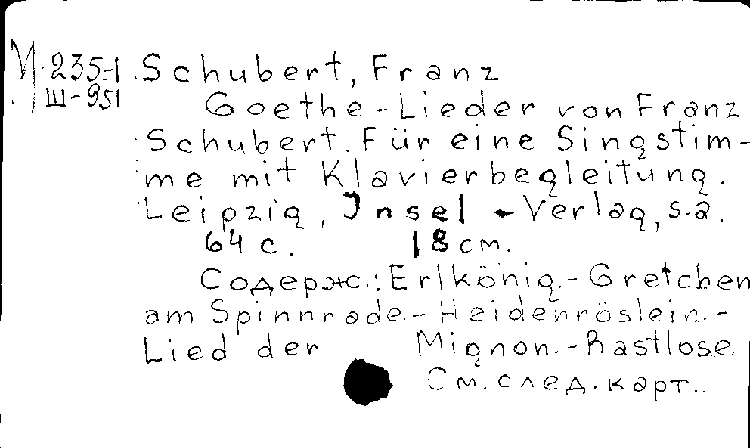 И.235-1 Schubert, Franz
III-951 Goethe-Lieder von Franz
Schubert. Für eine Singstim-
me mit Klavierbegleitung.
Leipzig, Insel-Verlag, s.a.
64 с. 18 см.
Содерж.: Erlkönig.- Gretchen
am Spinnrade.- Heidenröslein.-
Lied der Mignon.- Rastlose
См. след. карт..